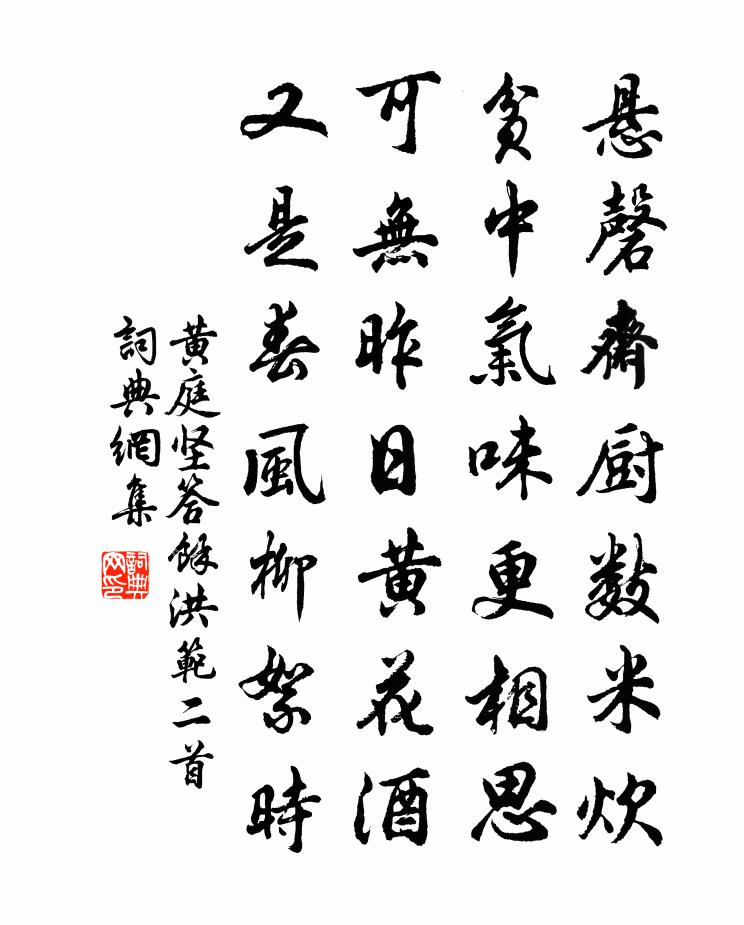 悬磬齋厨数米炊
貧中氣味更相思
可無昨日黄花酒
又是春風柳絮時
黄庭坚答餘洪範二首
詞典網集
詞典网印